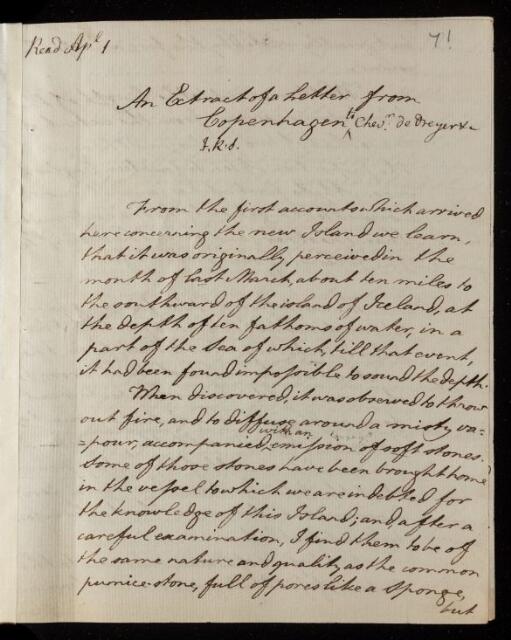 Read Apl 1
71
An Extract of a Letter from
Copenhagen to Chevr. de Dreyer &c
J.R.S.
From the first accounts which arrived
here concerning the new Island we learn,
that it was originally perceived in the
month of last March, about ten miles to
the southward of the island of Iceland, at
the depth of ten fathoms of water, in a
part of the sea of which, till that event,
it had been found impossible to sound the depth.
When discovered, it was observed to throw
out fire, and to diffuse around a misty va=
=pour, accompanied, with an emission of soft stones.
Some of those stones have been brought home
in the vessel to which we are indebted for
the knowledge of this Island; and, after a
careful examination, I find them to be of
the same nature and quality as the common
pumice-stone, full of pores like a sponge,
but